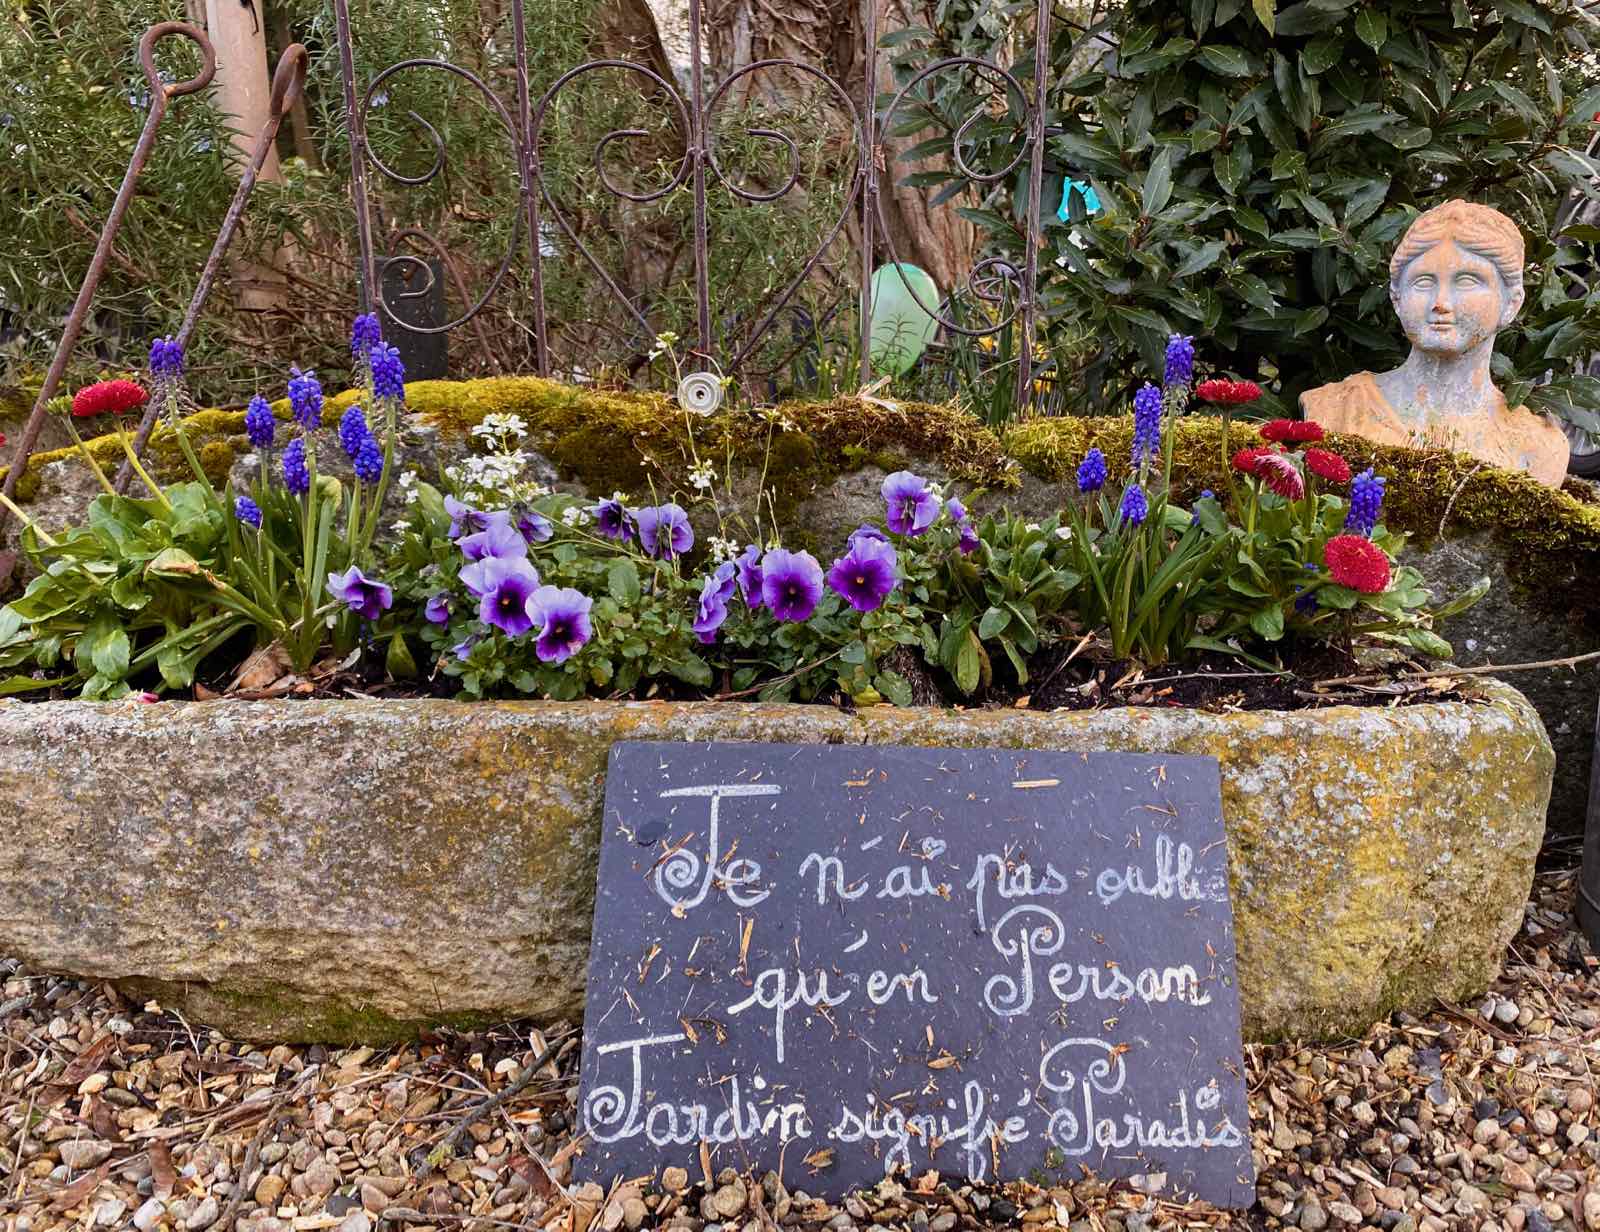 Je n'ai pas oublié
qu'en Person
Jardin signifié Paradis